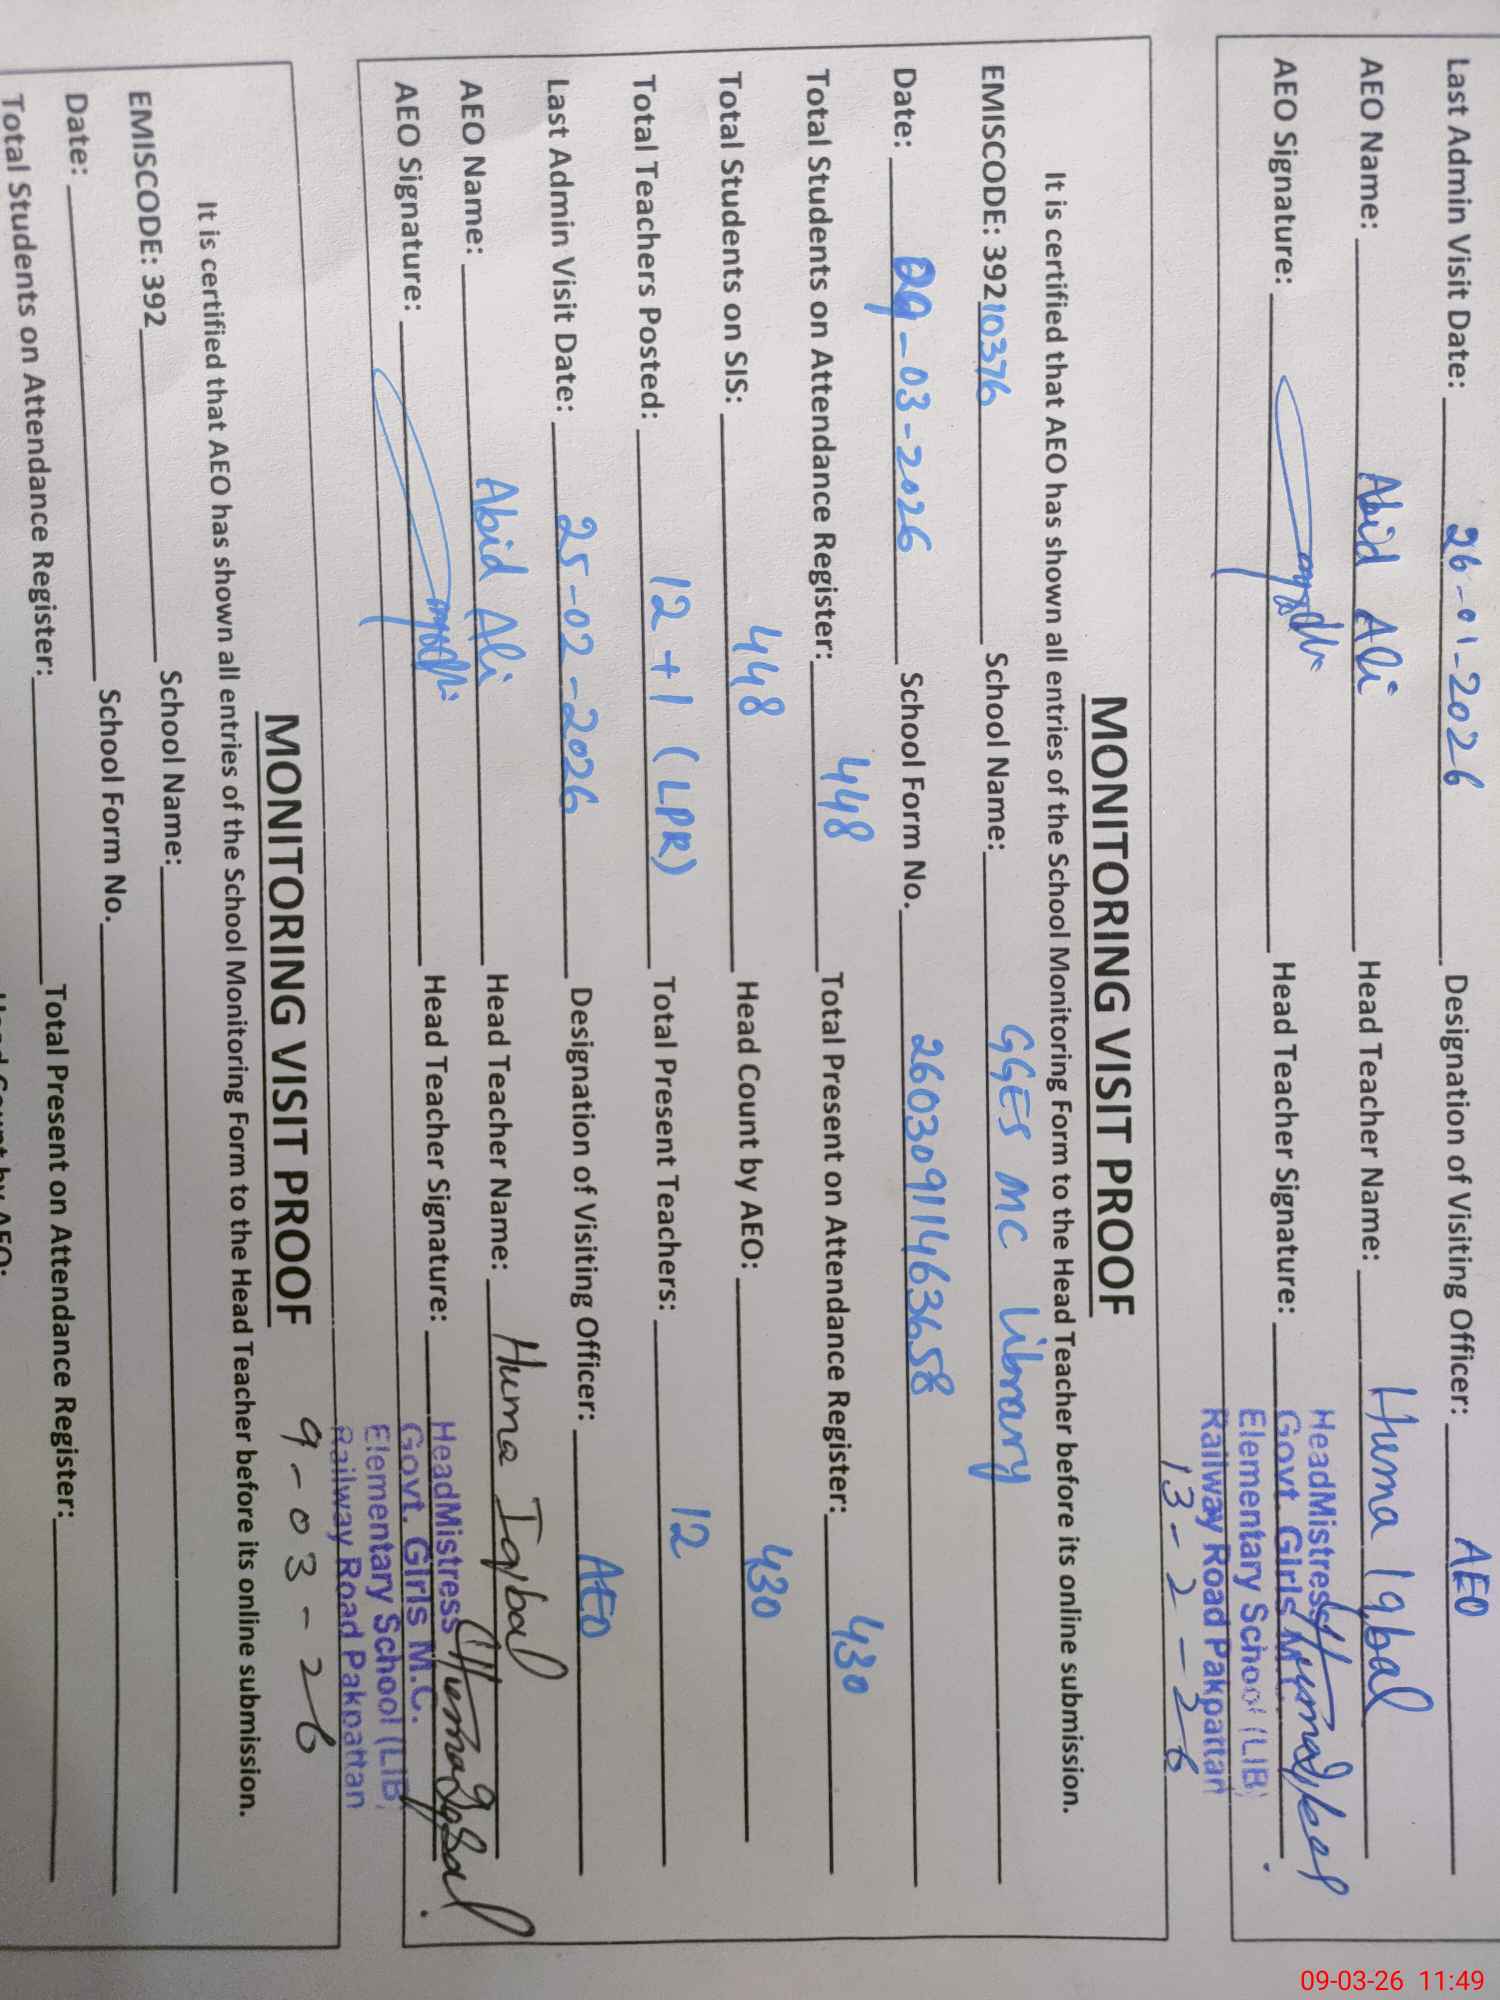 Last Admin Visit Date: 26-01-2026 Designation of Visiting Officer: AEO
AEO Name: Abid Ali Head Teacher Name: Huma Iqbal
AEO Signature: Head Teacher Signature: Huma Iqbal
HeadMistress
Govt. Girls M.C.
Elementary School (LIB)
Railway Road Pakpattan
13-2-26
MONITORING VISIT PROOF
It is certified that AEO has shown all entries of the School Monitoring Form to the Head Teacher before its online submission.
EMISCODE: 39210376 School Name: GGES MC Library
Date: 09-03-2026 School Form No. 2603091146 3658
Total Students on Attendance Register: 448 Total Present on Attendance Register: 430
Total Students on SIS: 448 Head Count by AEO: 430
Total Teachers Posted: 12+1 (LPR) Total Present Teachers: 12
Last Admin Visit Date: 25-02-2026 Designation of Visiting Officer: AEO
AEO Name: Abid Ali Head Teacher Name: Huma Iqbal
AEO Signature: Head Teacher Signature: Huma Iqbal
HeadMistress
Govt. Girls M.C.
Elementary School (LIB)
Railway Road Pakpattan
9-03-26
MONITORING VISIT PROOF
It is certified that AEO has shown all entries of the School Monitoring Form to the Head Teacher before its online submission.
EMISCODE: 392 School Name:
Date: School Form No.
Total Students on Attendance Register: Total Present on Attendance Register:
Head Count by AEO:
09-03-26 11:49